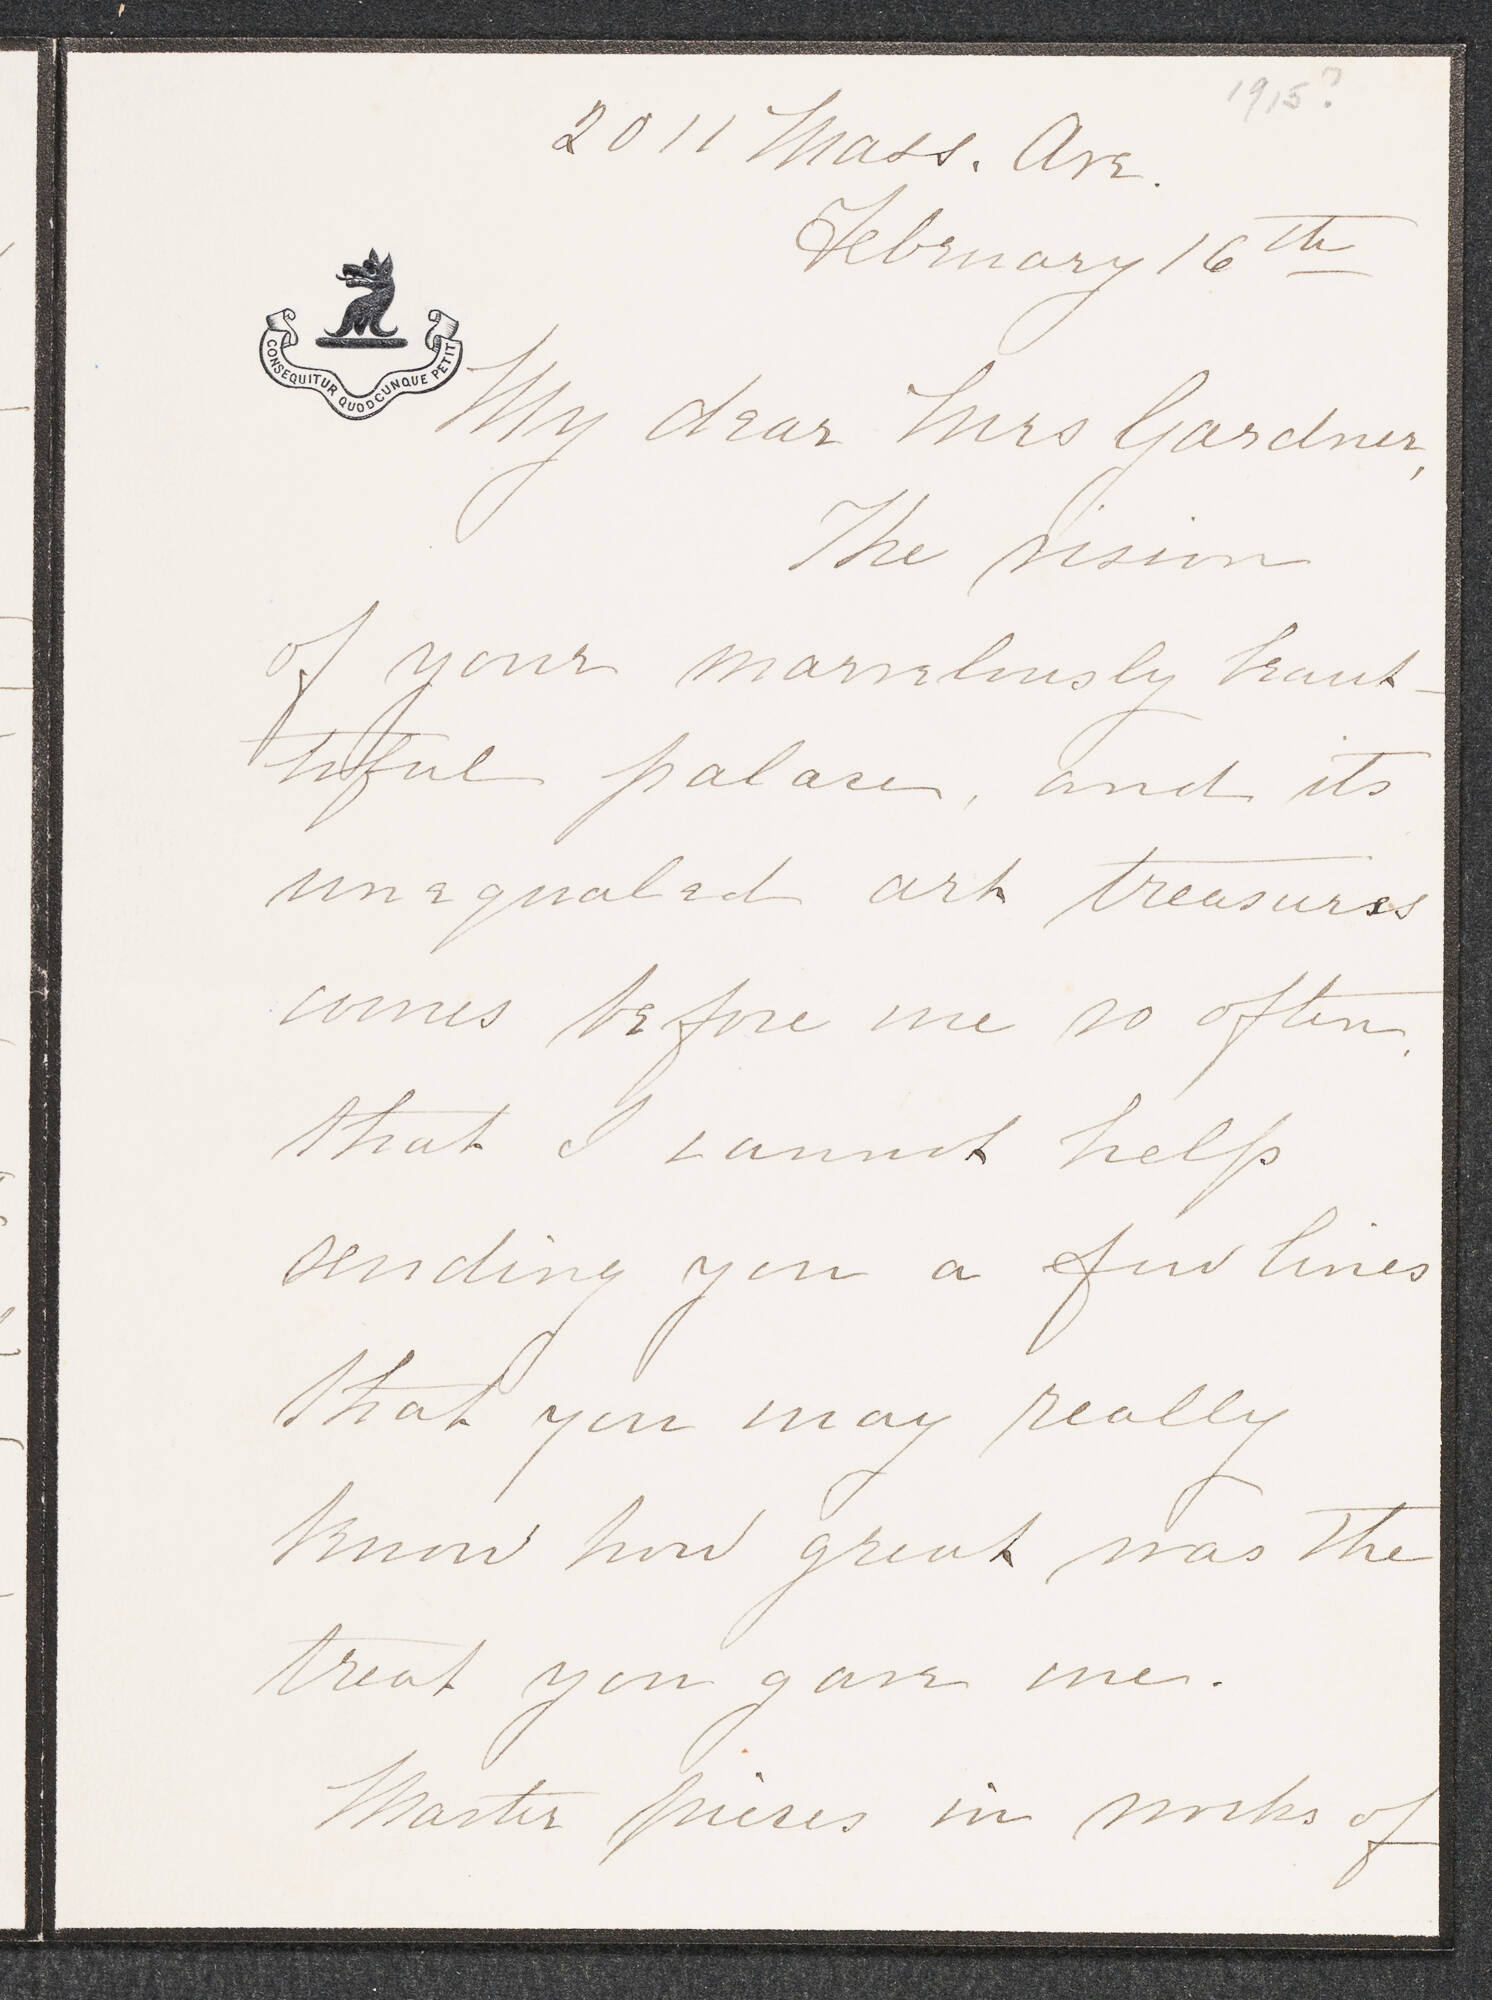 1915?
2011 Mass. Ave.
February 16th
CONSEQUITUR QUODCUNQUE PETIT
My dear Mrs Gardner,
The vision
of your marvelously beaut-
tiful palace, and its
unequaled art treasures
comes before me so often,
that I cannot help
sending you a few lines
that you may really
know how great was the
treat you gave me.
Master pieces in works of